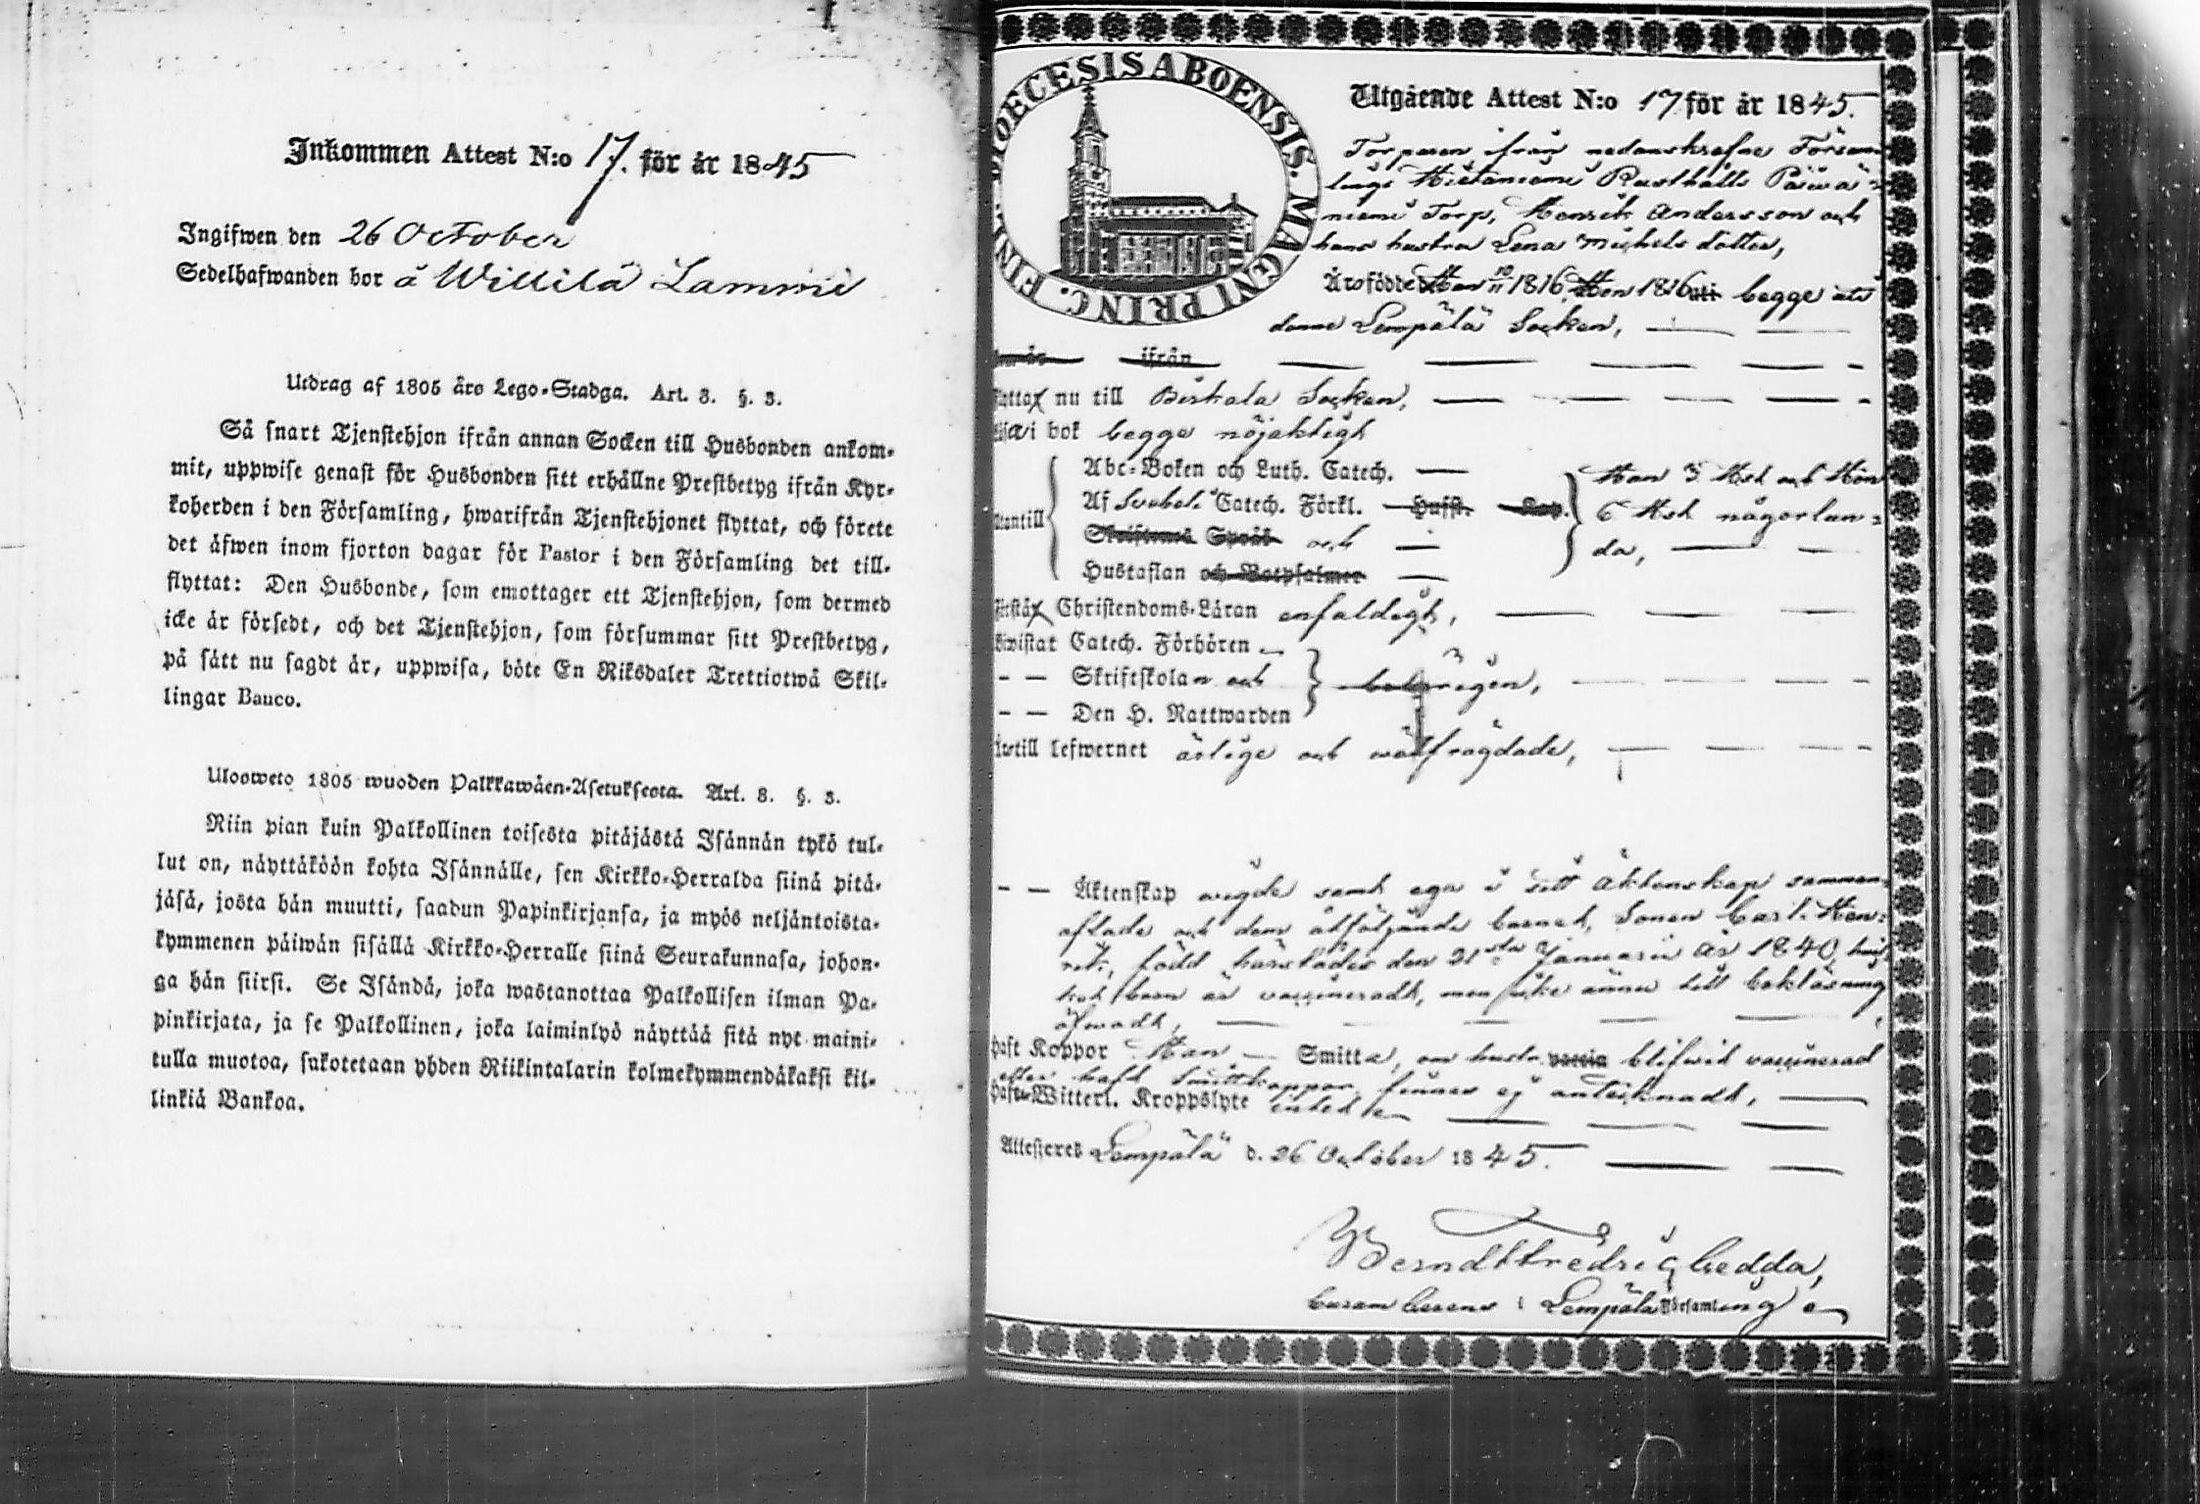 Inkommen Attest N:o 17. för år 1845
Ingifwen den 26 October
Sedelhafwanden bor å Willilä Lammi
Utdrag af 1805 års Lego-Stadga. Art. 3. §. 3.
Så snart Tjenstehjon ifrån annan Socken till Husbonden ankom-
mit, uppwise genast för Husbonden sitt erhållne Prestbetyg ifrån Kyr-
koherden i den Församling, hwarifrån Tjenstehjonet flyttat, och förete
det äfwen inom fjorton dagar för Pastor i den Församling det till-
flyttat: Den Husbonde, som emottager ett Tjenstehjon, som dermed
icke är försedt, och det Tjenstehjon, som försummar sitt Prestbetyg,
på sätt nu sagdt är, uppwisa, böte En Riksdaler Trettiotwå Skil-
lingar Banco.
Ulosweto 1805 wuoden Palkkawäen-Asetuksesta. Art. 8. §. 3.
Niin pian kuin Palkollinen toisesta pitäjästä Isännän tykö tul-
lut on, näyttäköön kohta Isännälle, sen Kirkko-Herralda siinä pitä-
jäsä, josta hän muutti, saadun Papinkirjansa, ja myös neljäntoista-
kymmenen päiwän sisällä Kirkko-Herralle siinä Seurakunnasa, johon-
ga hän siirsi. Se Isändä, joka wastanottaa Palkollisen ilman Pa-
pinkirjata, ja se Palkollinen, joka laiminlyö näyttää sitä nyt maini-
tulla muotoa, sakotetaan yhden Riikintalarin kolmekymmendäkaksi kil-
linkiä Bankoa.
DIOECESIS ABOENSIS. MAGNI PRINC. FINL.
Utgående Attest N:o 17 för år 1845.
Torparen ifrån nedanskrefne Försam-
lings Hietaniemi Rusthålls Päiwä-
niemi Torp, Henrik Andersson och
hans hustru Lena Michelsdotter,
Äro födde Han 10/11 1816, Hon 1816 uti begge uti
denne Lempälä Socken,
ifrån
nu till Birkala Socken,
i bok begge nöjaktigt
Abc-Boken och Luth. Catech.
Af Svebel. Catech. Förkl. Hufst. Kap.
Skriftens Språk och
Hustaflan och Botpsalmer
Utantill
Han 3 Hst och Hon
6 Hst någorlun-
da,
Christendoms-Läran enfaldigt,
Catech. Förhören
– – Skriftskolan och
– – Den H. Nattwarden
till lefwernet ärlige och wälfrägdade,
– – Äktenskap wigde samt ega i sitt Äktenskap samman-
aflade och dem åtföljande barnet, Sonen Carl Hen-
rik, född härstädes den 21sta Januarii år 1840, hwil-
ket barn är vaccineradt, men icke ännu till bokläsning
öfwadt,
Haft Koppor Han Smitta, om hustr. vaccin blifwit vaccinerad
eller haft Smittkoppor finnes ej antecknadt,
Witterl. Kroppslyte intet
Attesteres Lempälä d. 26 October 1845.
Berndt Fredric Gedda,
Curam Gerens i Lempälä Församling